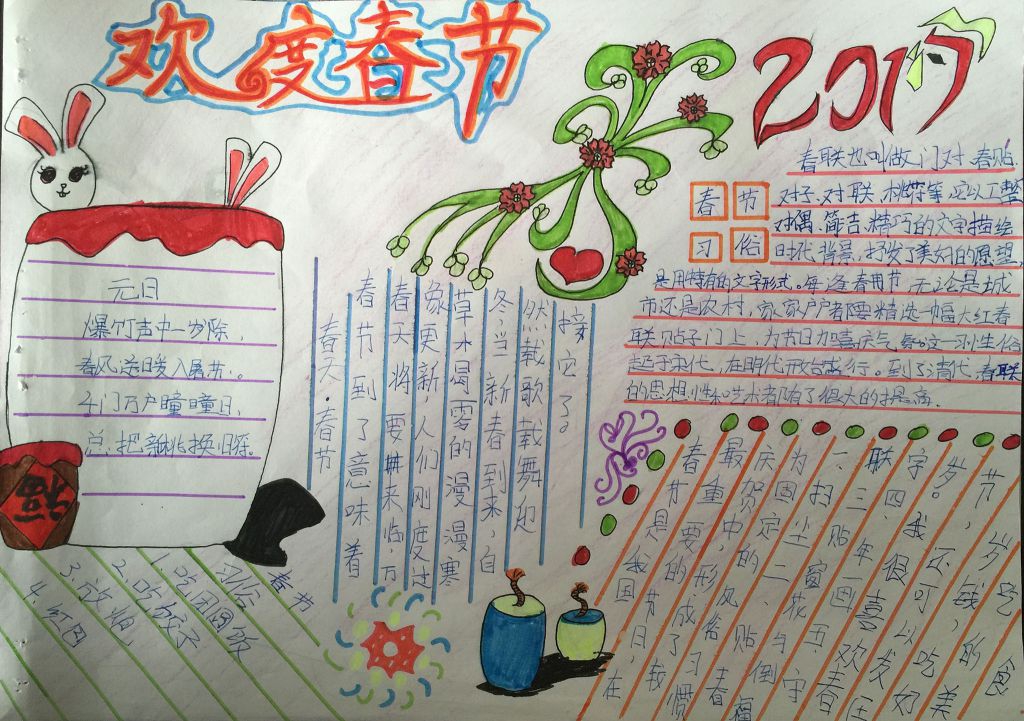 欢度春节
2017
元日
爆竹声中一岁除，
春风送暖入屠苏。
千门万户曈曈日，
总把新桃换旧符。
福
春节
习俗
1.吃团圆饭
2.吃饺子
3.放炮
4.红包
春天·春节
春节到了意味着
春天将要来临，万
象更新，人们刚度过
草木凋零的漫漫寒
冬，当新春到来，自
然载歌载舞迎
接它了。
春节
习俗
春联也叫做门对、春贴、
对子、对联、桃符等，它以工整、
对偶、简洁、精巧的文字描绘
时代背景，抒发了美好的愿望，
是用特有的文字形式。每逢春节，无论是城
市还是农村，家家户户都要精选一幅大红春
联贴于门上，为节日加喜庆气氛。这一习俗
起于宋代，在明代开始盛行。到了清代，春联
的思想性和艺术都有了很大的提高。
春节是我国节日，我
最重要的 在
庆贺中，形成了习惯
为固定的风俗 春
一、扫尘二、贴 福
联三、贴窗花与倒
字四、年画五、守
岁。我很喜欢春
节， 还可以 好
岁钱， 吃 美
的食